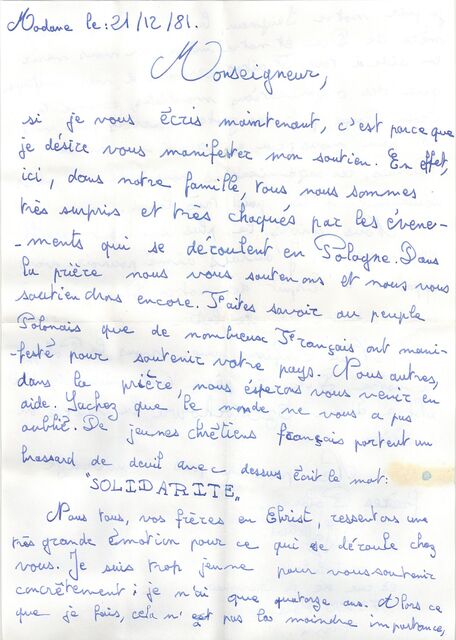 Modane le: 21/12/81.
Monseigneur,
si je vous écris maintenant, c'est parce que
je désire vous manifester mon soutien. En effet,
ici, dans notre famille, tous nous sommes
très surpris et très choqués par les évene-
-ments qui se déroulent en Pologne. Dans
la prière nous vous soutenons et nous vous
soutiendrons encore. Faites savoir au peuple
Polonais que de nombreux Français ont mani-
-festé pour soutenir votre pays. Nous autres,
dans la prière, nous éspérons vous venir en
aide. Sachez que le monde ne vous a pas
oublié. De jeunes chrétiens français portent un
brassard de deuil avec dessus écrit le mot:
"SOLIDARITE"
Nous tous, vos frères en Christ, ressentons une
très grande émotion pour ce qui se déroule chez
vous. Je suis trop jeune pour vous soutenir
concrètement; je n'ai que quatorze ans. Alors ce
que je fais, cela n'est pas la moindre importance,